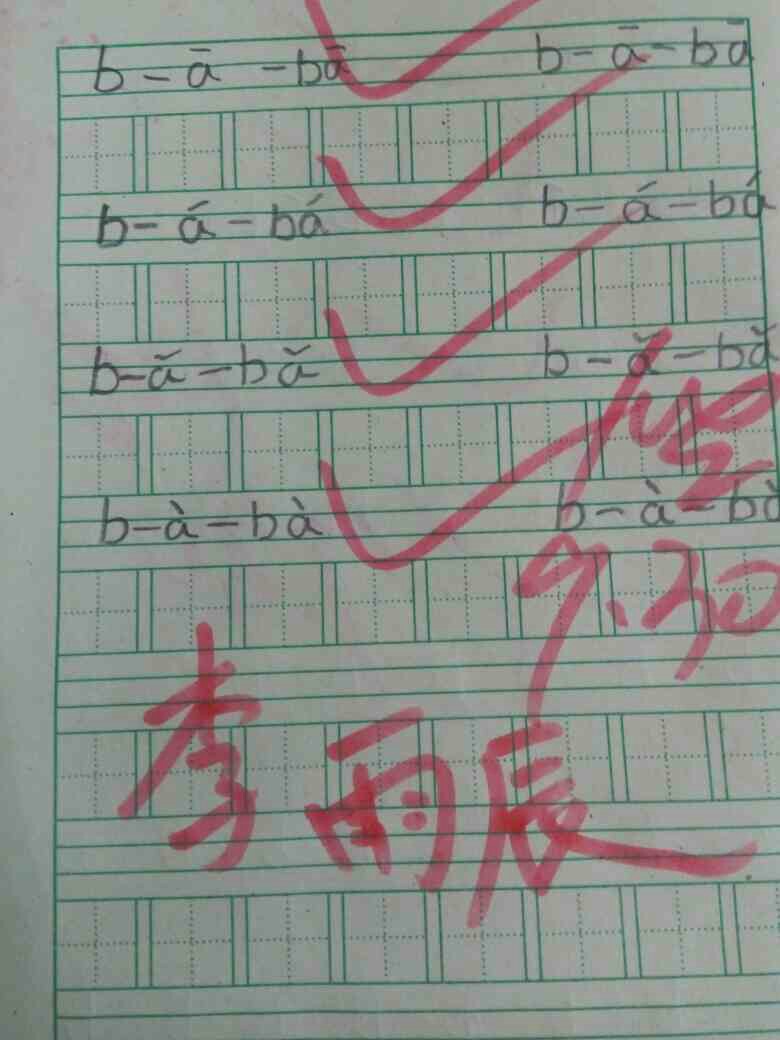 b-ā-bā b-ā-bā
b-á-bá b-á-bá
b-ǎ-bǎ b-ǎ-bǎ
b-à-bà b-à-bà
9.30
李雨辰